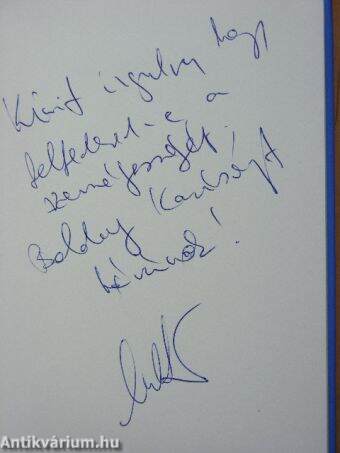 Kicsit izgulva hogy
felfedezed-e a
személyességét.
Boldog Karácsonyt
kívánok!
Antikvárium.hu